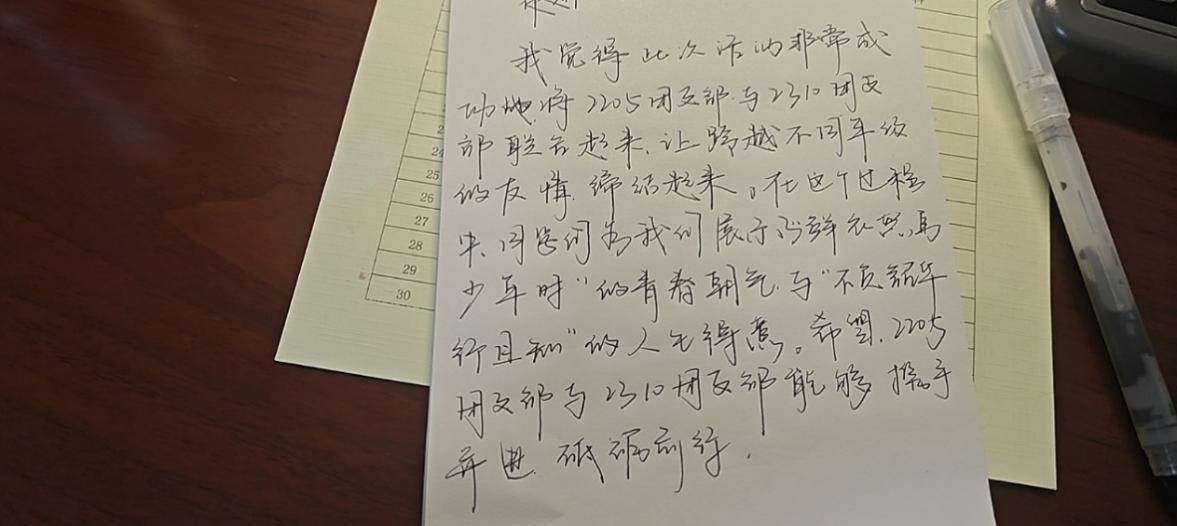 我觉得此次活动非常成
功地将2205团支部与2310团支
部联合起来,让跨越不同年级
的友情缔结起来。在这个过程
中,同学们为我们展示了"鲜衣怒马
少年时"的青春朝气与"不负韶华
行且知"的人生得意。希望,2205
团支部与2310团支部能够携手
并进,砥砺前行.
24
25
26
27
28
29
30